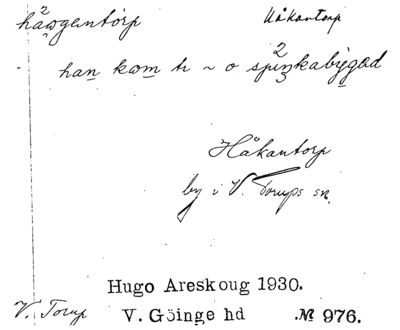 håwgentórp Håkantorp
han kom tr ~ o spinkabýgəd
Håkantorp
by i V. Torups sn.
Hugo Areskoug 1930.
V. Torup V. Göinge hd .№ 976.